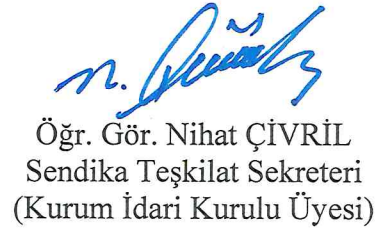 Öğr. Gör. Nihat ÇİVRİL
Sendika Teşkilat Sekreteri
(Kurum İdari Kurulu Üyesi)